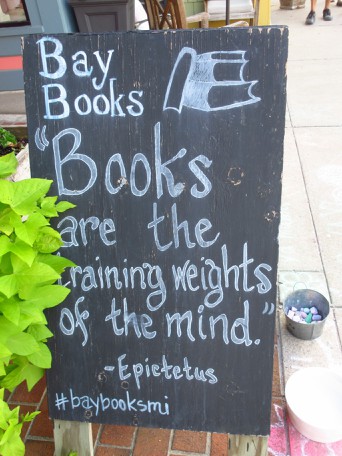 Bay
Books
"Books
are the
training weights
of the mind."
-Epictetus
#baybooksmi